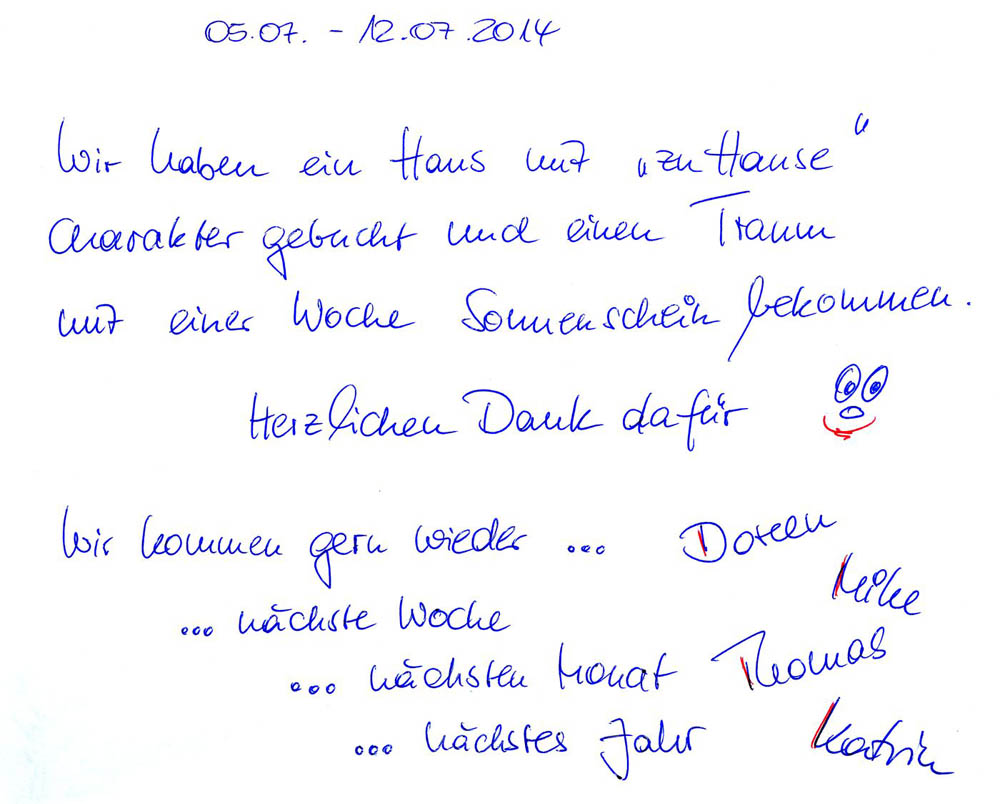 05.07. - 12.07.2014
Wir haben ein Haus mit „zu Hause“
Charakter gebucht und einen Traum
mit einer Woche Sonnenschein bekommen.
Herzlichen Dank dafür
Wir kommen gern wieder ... Doreen
Mike
... nächste Woche
... nächsten Monat Thomas
... nächstes Jahr Katrin